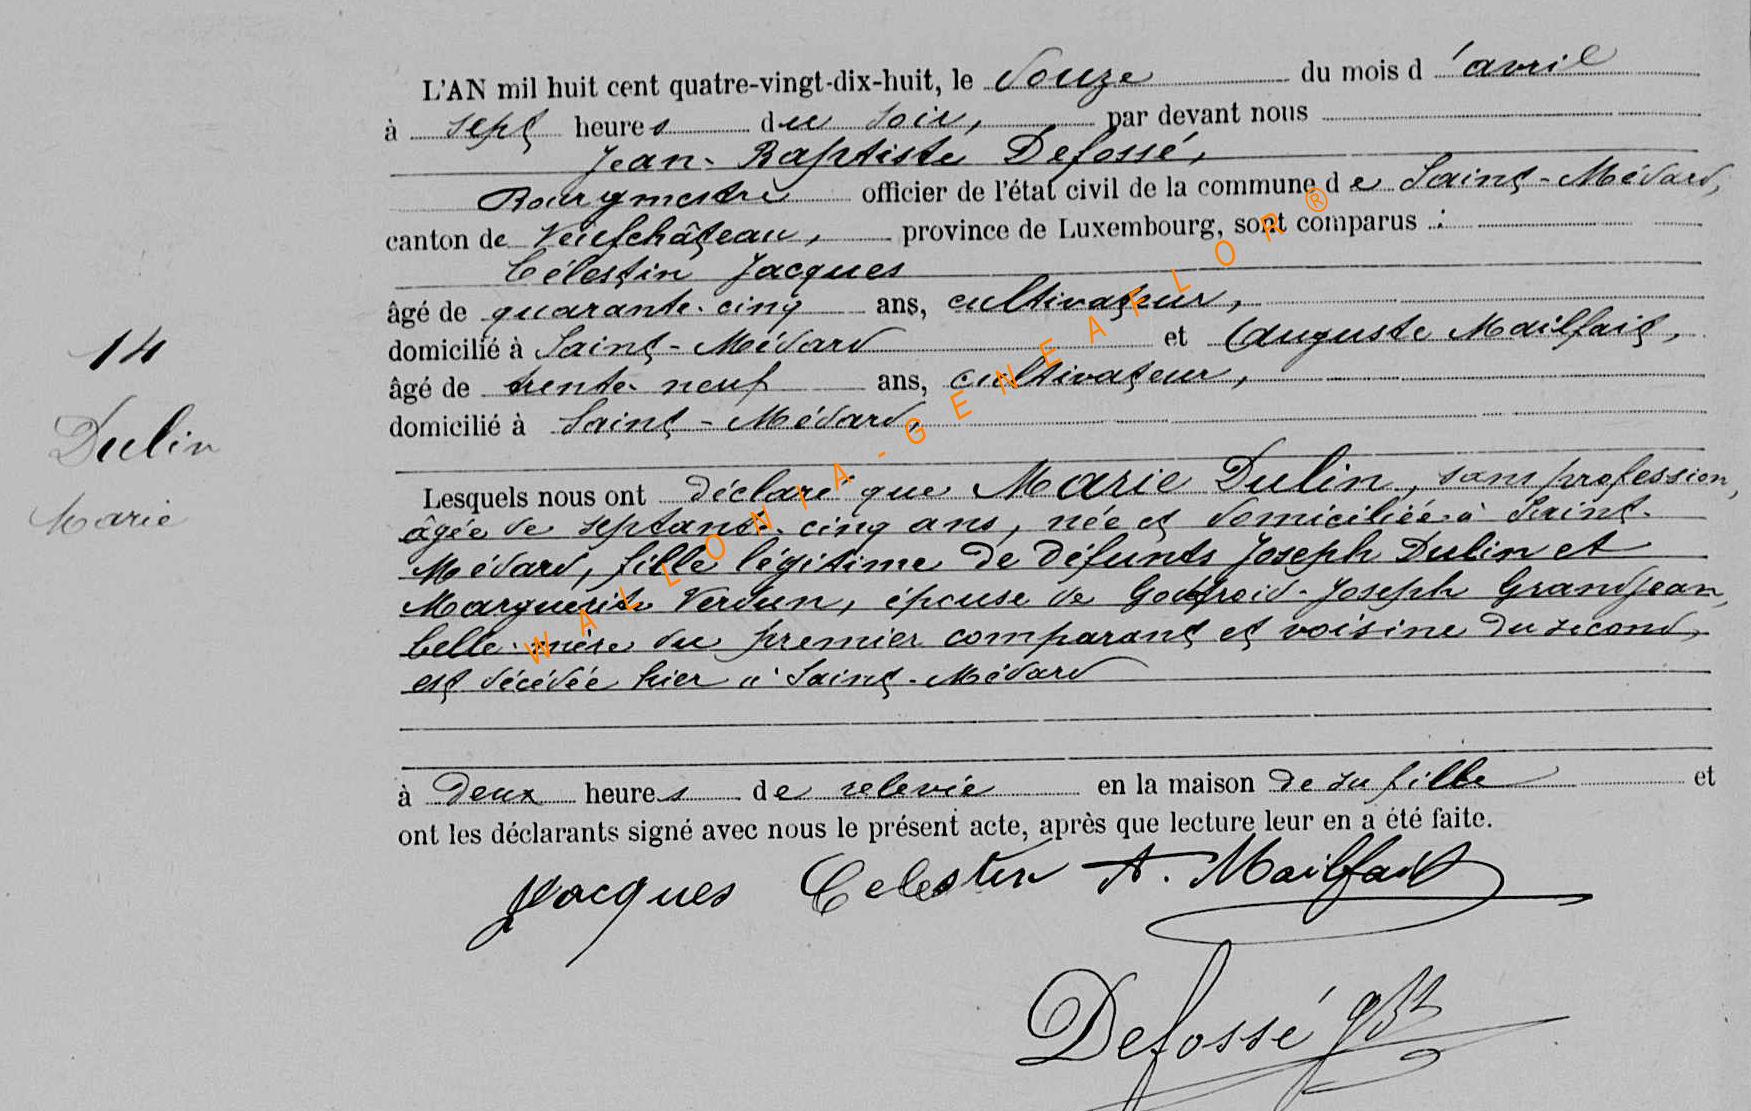 L'AN mil huit cent quatre-vingt-dix-huit, le douze du mois d'avril
à sept heures du soir, par devant nous
Jean-Baptiste Defossé,
Bourgmestre officier de l'état civil de la commune de Saint-Médard,
canton de Neufchâteau, province de Luxembourg, sont comparus :
Célestin Jacques
âgé de quarante-cinq ans, cultivateur,
domicilié à Saint-Médard et Auguste Mailfait,
âgé de trente-neuf ans, cultivateur,
domicilié à Saint-Médard,
14
Dulin
Marie
Lesquels nous ont déclaré que Marie Dulin, sans profession,
âgée de septante-cinq ans, née et domiciliée à Saint-
Médard, fille légitime de défunts Joseph Dulin et
Marguerite Verdun, épouse de Godfroid-Joseph Grandjean,
belle-mère du premier comparant et voisine du second,
est décédée hier à Saint-Médard
à deux heures de relevée en la maison de sa fille et
ont les déclarants signé avec nous le présent acte, après que lecture leur en a été faite.
Jacques Celestin A. Mailfait
Defossé JBt
WALLONIA-GENEAFLOR®